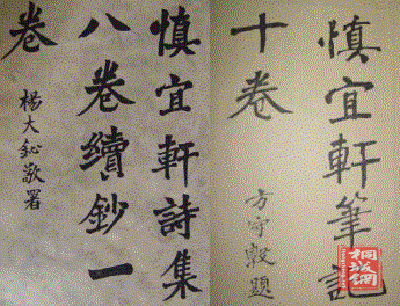 慎宜軒筆記
十卷
方守敦題
桐城網
慎宜軒詩集
八卷續鈔一
卷
楊大鈊敬署